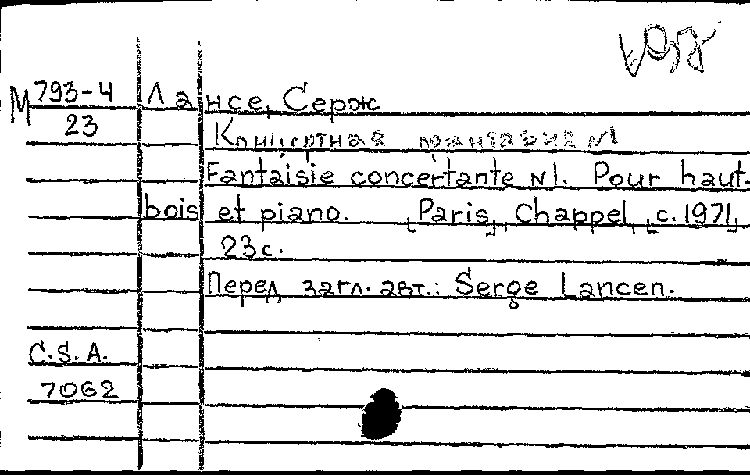 М 793-4 Лансе, Серж
23 Концертная фантазия №1
Fantaisie concertante N1. Pour haut-
bois et piano. [Paris], Chappel, [c. 1971],
23с.
Перед загл. авт.: Serge Lancen.
C.S.A.
7062